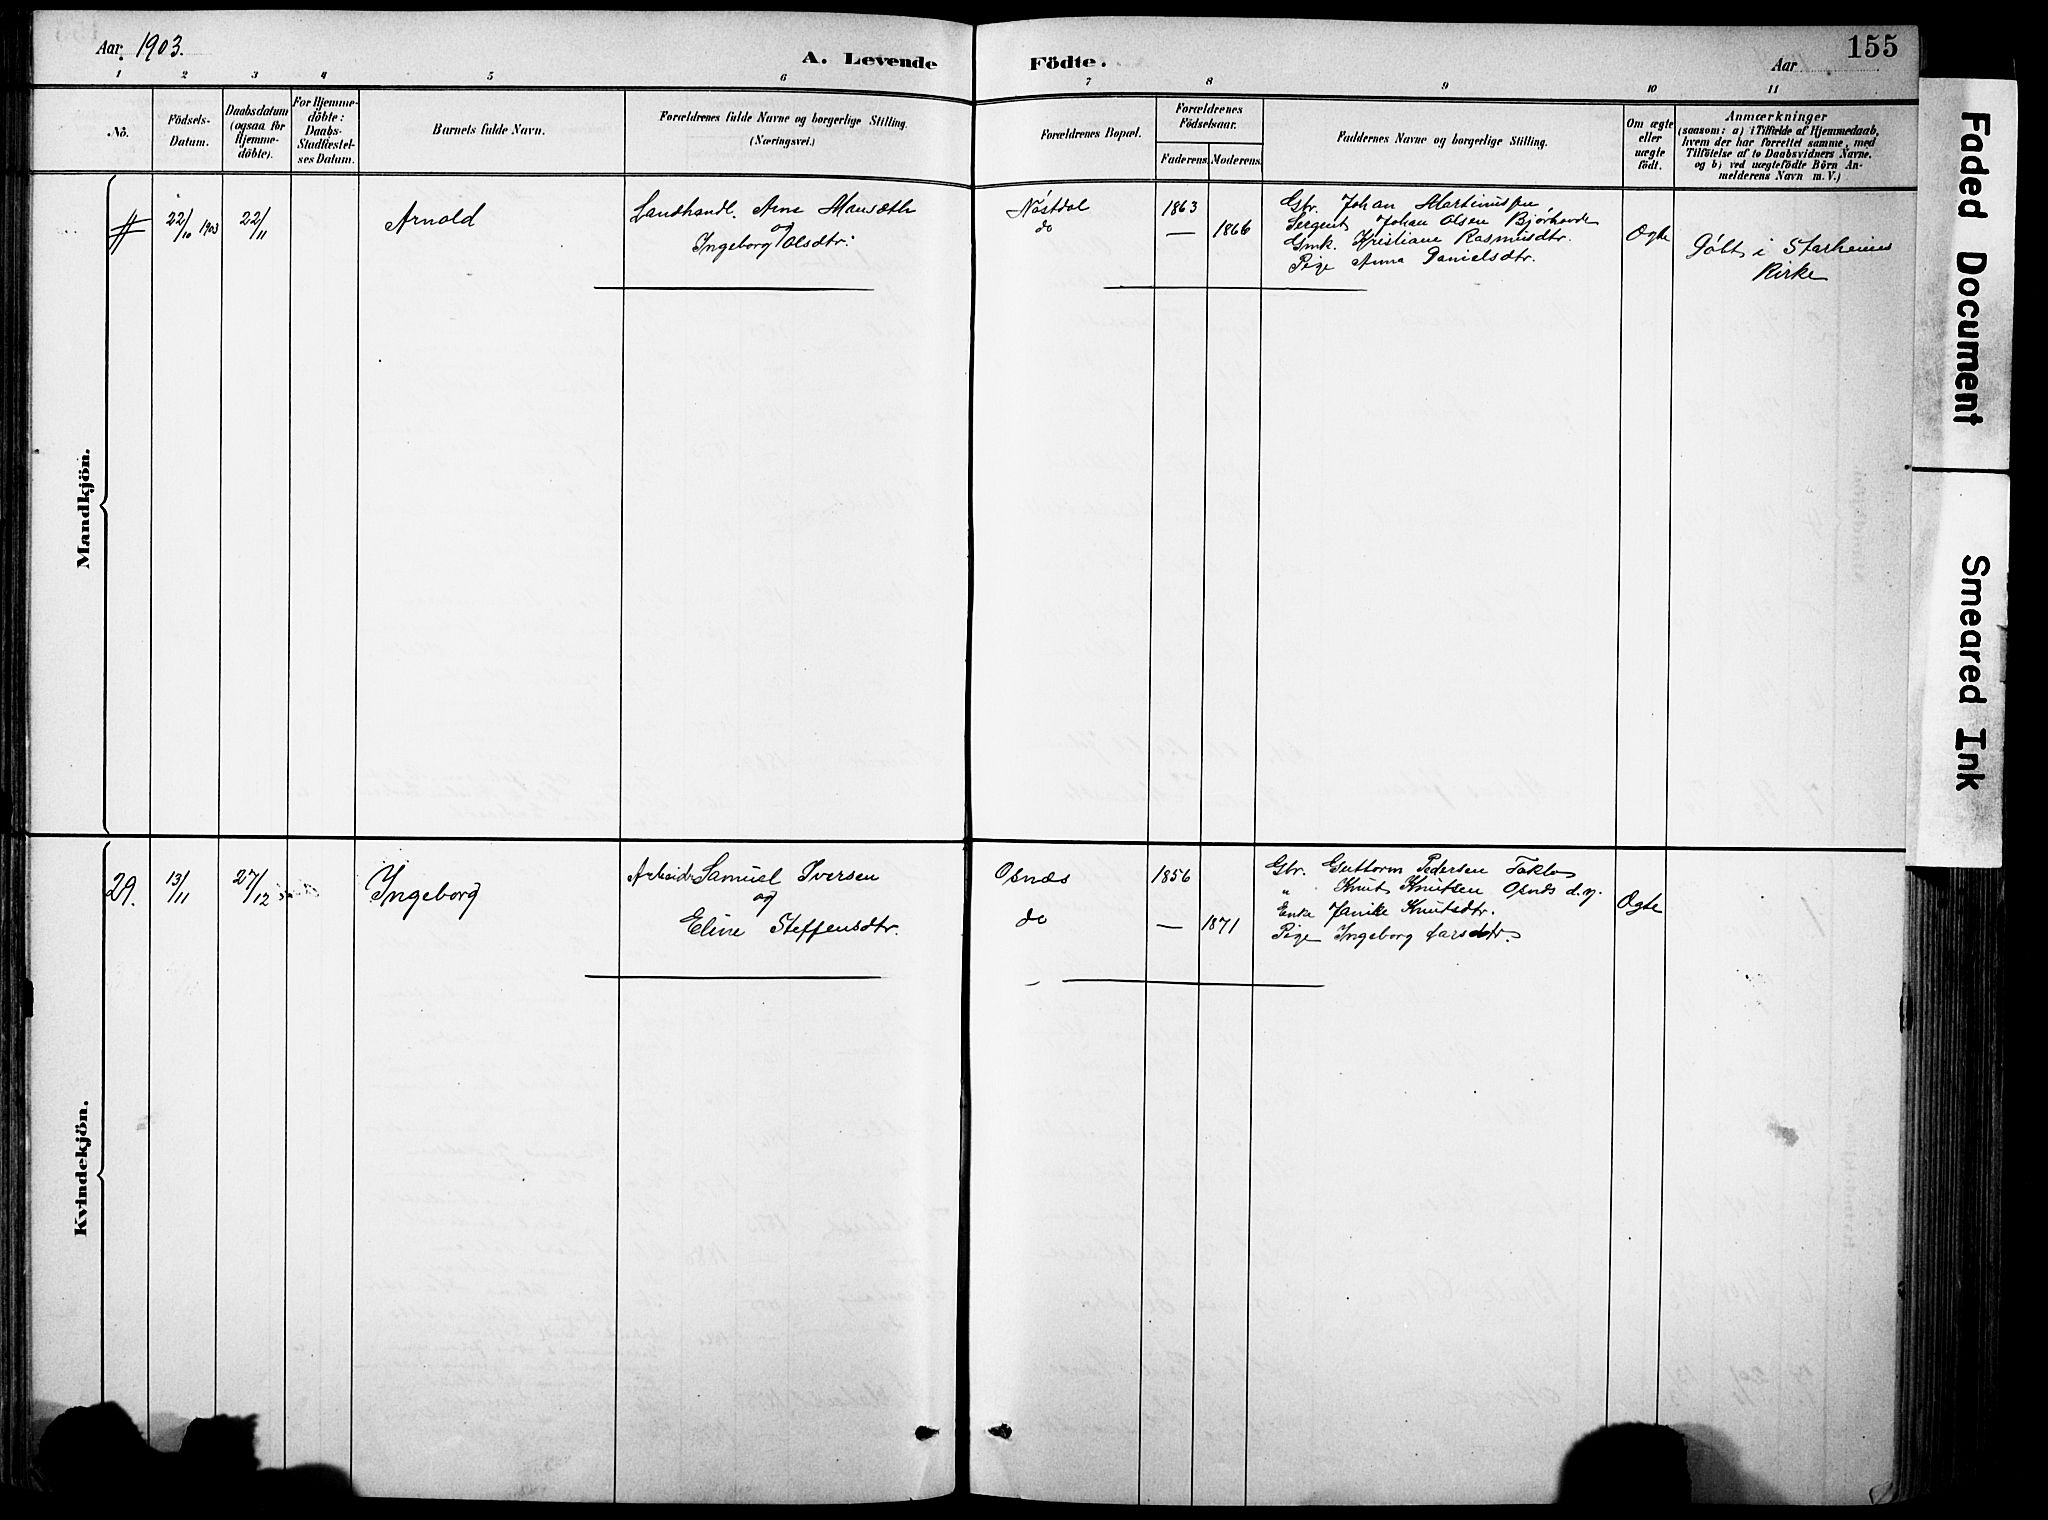 Aar 1903.
A. Levende
Födte.
Aar
155
1
2
3
4
5
6
7
8
9
10
11
No.
Födsels-
Datum.
Daabsdatum
(ogsaa for
Hjemme-
döbte).
For Hjemme-
döbte:
Daabs-
Stadfæstel-
ses Datum.
Barnets fulde Navn.
Forældrenes fulde Navne og borgerlige Stilling.
(Næringsvei.)
Forældrenes Bopæl.
Forældrenes
Födselsaar.
Faderens.
Moderens.
Faddernes Navne og borgerlige Stilling.
Om ægte
eller
uægte
födt.
Anmærkninger
(saasom: a) i Tilfælde af Hjemmedaab,
hvem der har forrettet samme, med
Tilföielse af to Daabsvidners Navne.
og b) ved uægtefödte Börn An-
melderens Navn m. V.)
Mandkjön.
22/10 1903
22/11
Arnold
Landhandl. Arne Mausæth
og
Ingeborg Olsdtr.
Nøstdal
do
1863
—
1866
Gbr. Johan Martinussen,
Sergent Johan Olsen Bjørhovde
Gmk. Kristiane Rasmusdtr.
Pige Anna Danielsdtr.
Ægte
Døbt i Starheims
Kirke
Kvindekjön.
29.
13/11
27/12
Ingeborg
Arbeider Samuel Iversen
og
Eline Steffensdtr.
Osnæs
do
1856
—
1871
Gbr. Guttorm Pedersen Taklo
" Knut Knutsen Osnæs d.y.
Enke Janike Knutsdtr.
Pige Ingeborg Larsdtr.
Ægte
Faded Document
Smeared Ink